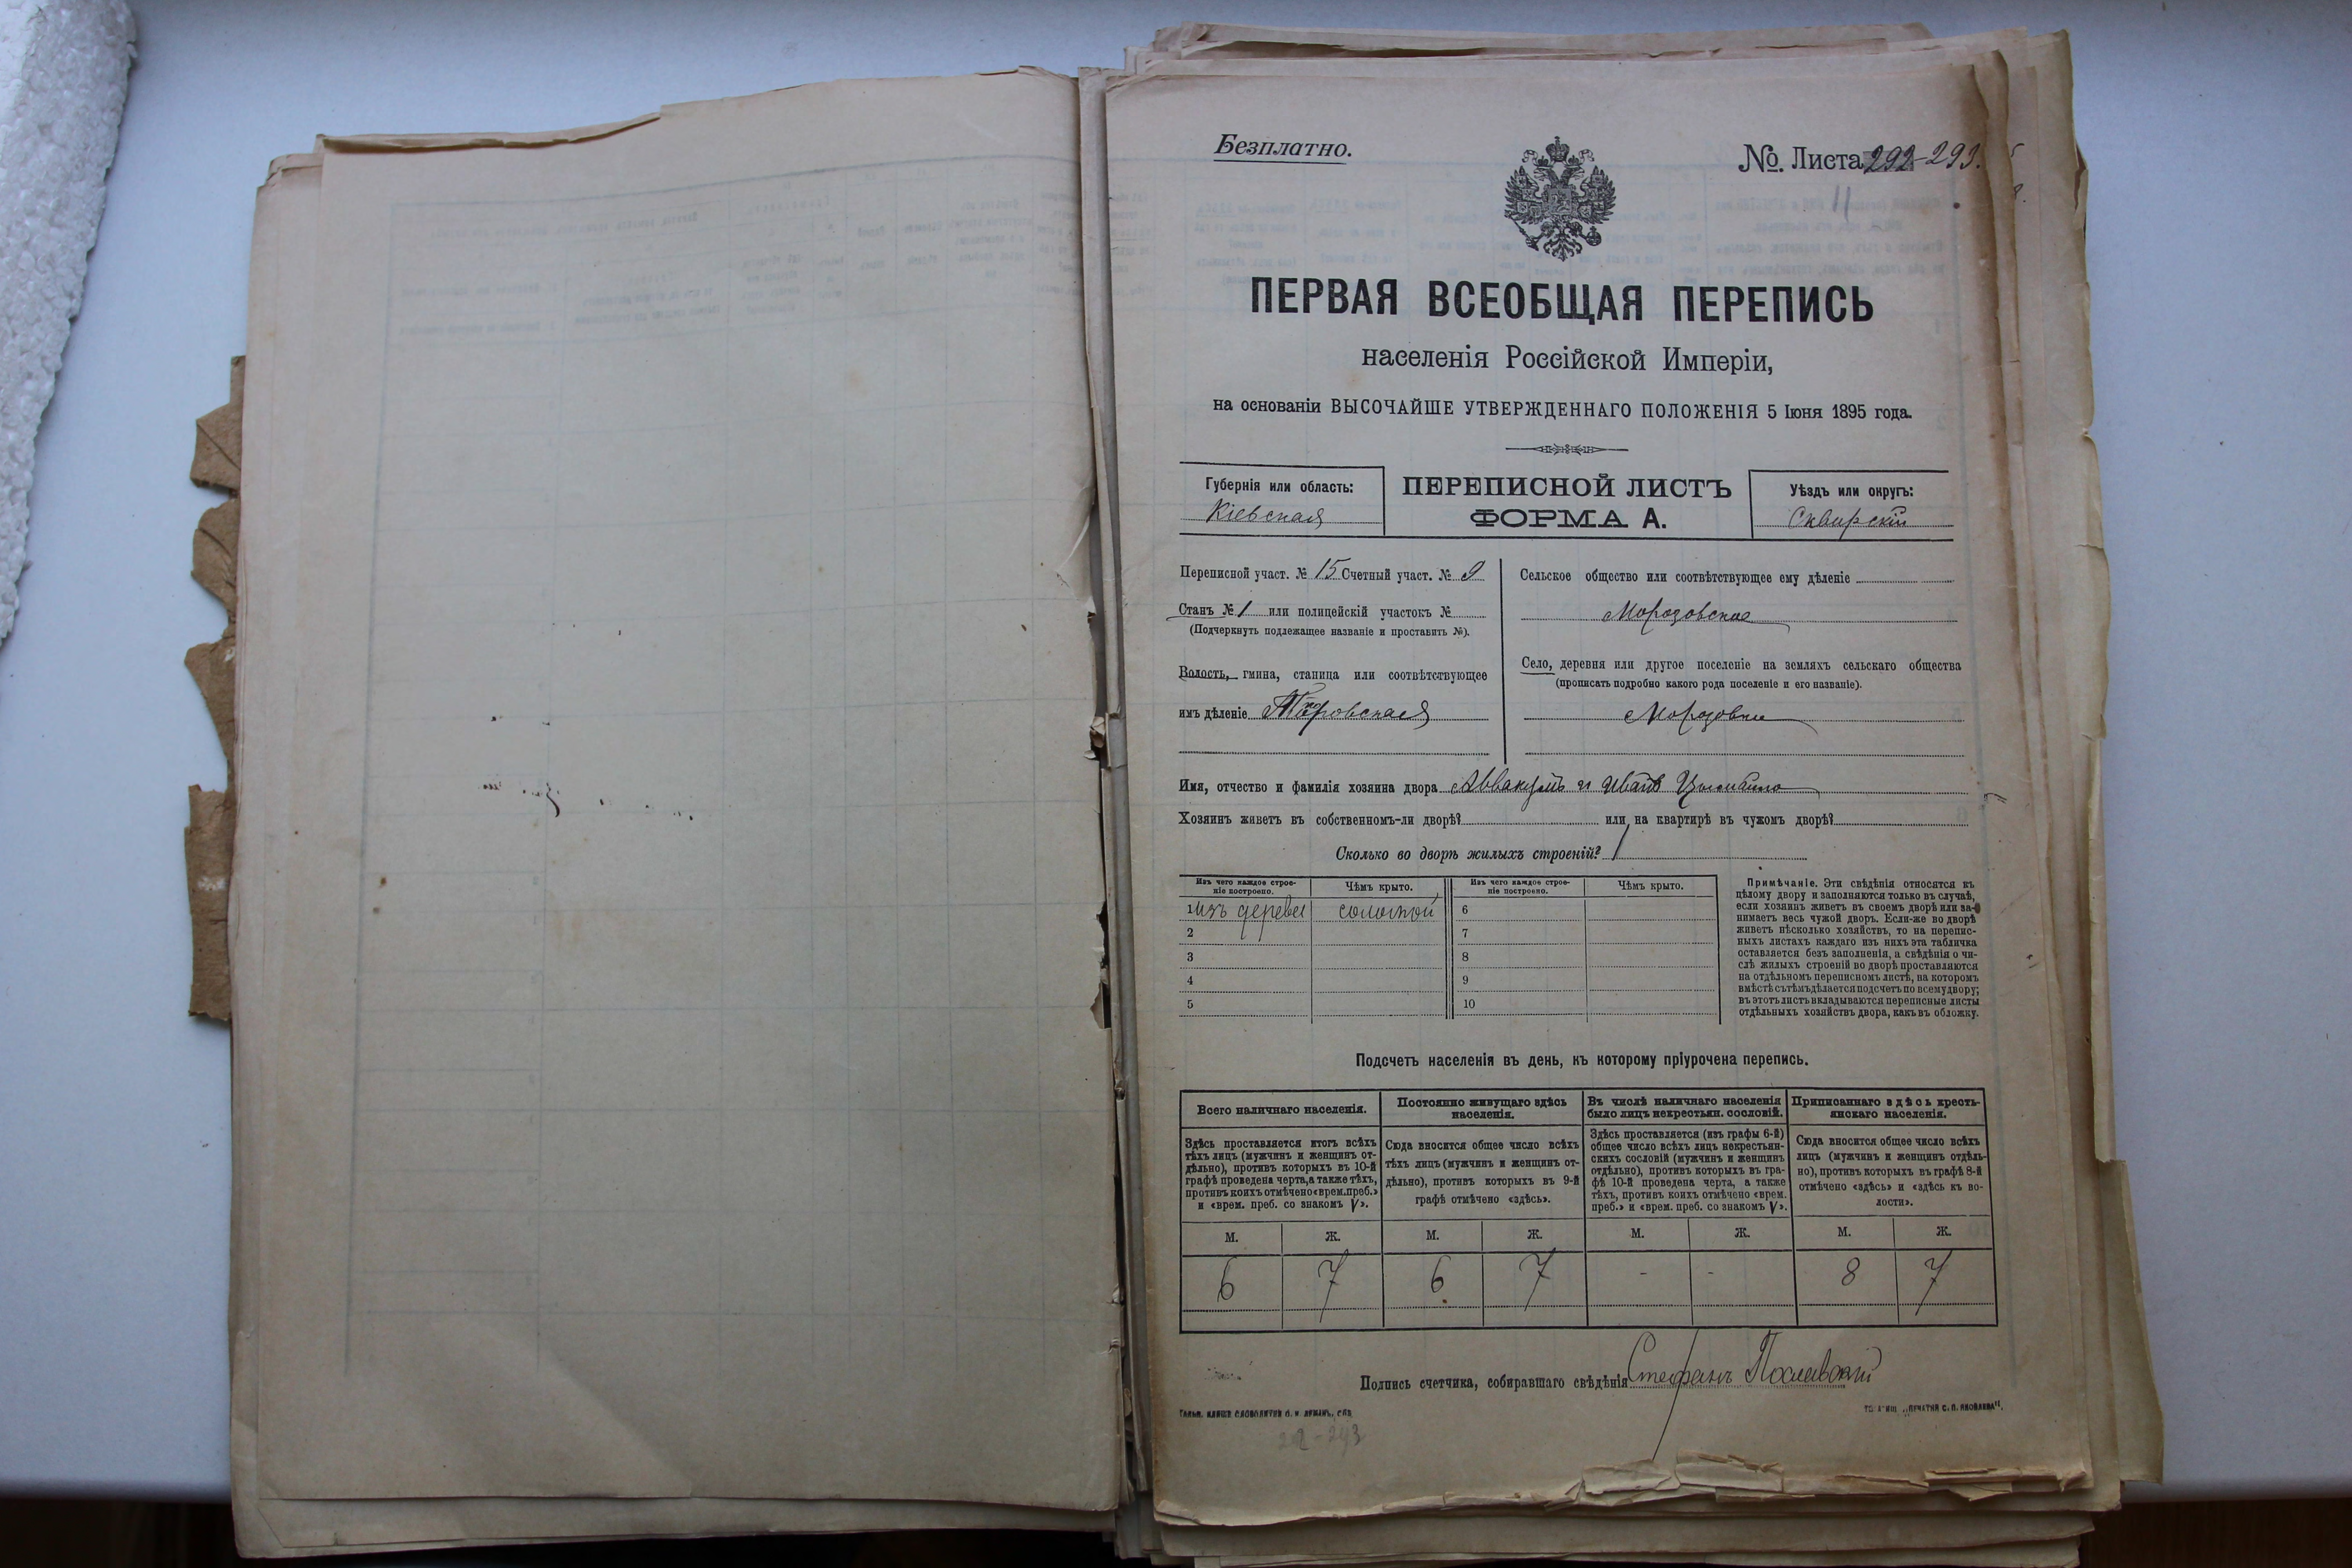 Безплатно.
№. Листа 292-293.
11
ПЕРВАЯ ВСЕОБЩАЯ ПЕРЕПИСЬ
населенія Россійской Имперіи,
на основаніи ВЫСОЧАЙШЕ УТВЕРЖДЕННАГО ПОЛОЖЕНІЯ 5 Іюня 1895 года.
Губернія или область:
Кіевская
ПЕРЕПИСНОЙ ЛИСТЪ
ФОРМА А.
Уѣздъ или округъ:
Сквирскій
Переписной участ. № 15 Счетный участ. № 9
Станъ № 1 или полицейскій участокъ №
(Подчеркнуть подлежащее названіе и проставить №).
Волость, гмина, станица или соотвѣтствующее
имъ дѣленіе
Сельское общество или соотвѣтствующее ему дѣленіе
Морозовское
Село, деревня или другое поселеніе на земляхъ сельскаго общества
(прописать подробно какого рода поселеніе и его названіе).
Морозовка
Имя, отчество и фамилія хозяина двора Аввакумъ и Иванъ
Хозяинъ живетъ въ собственномъ-ли дворѣ? или на квартирѣ въ чужомъ дворѣ?
Сколько во дворѣ жилыхъ строеній? 1
Изъ чего каждое строе-
ніе построено.
Чѣмъ крыто.
Изъ чего каждое строе-
ніе построено.
Чѣмъ крыто.
1 изъ дерева соломой 6
2 7
3 8
4 9
5 10
Примѣчаніе. Эти свѣдѣнія относятся къ
цѣлому двору и заполняются только въ случаѣ,
если хозяинъ живетъ въ своемъ дворѣ или за-
нимаетъ весь чужой дворъ. Если-же во дворѣ
живетъ нѣсколько хозяйствъ, то на перепис-
ныхъ листахъ каждаго изъ нихъ эта табличка
оставляется безъ заполненія, а свѣдѣнія о чи-
слѣ жилыхъ строеній во дворѣ проставляются
на отдѣльномъ переписномъ листѣ, на которомъ
вмѣстѣ съ тѣмъ дѣлается подсчетъ по всему двору;
въ этотъ листъ вкладываются переписные листы
отдѣльныхъ хозяйствъ двора, какъ въ обложку.
Подсчетъ населенія въ день, къ которому пріурочена перепись.
Всего наличнаго населенія.
Здѣсь проставляется итогъ всѣхъ
тѣхъ лицъ (мужчинъ и женщинъ от-
дѣльно), противъ которыхъ въ 10-й
графѣ проведена черта, а также тѣхъ,
противъ коихъ отмѣчено «врем. преб.»
и «врем. преб. со знакомъ V».
Постоянно живущаго здѣсь
населенія.
Сюда вносится общее число всѣхъ
тѣхъ лицъ (мужчинъ и женщинъ от-
дѣльно), противъ которыхъ въ 9-й
графѣ отмѣчено «здѣсь».
Въ числѣ наличнаго населенія
было лицъ некрестьян. сословій.
Здѣсь проставляется (изъ графы 6-й)
общее число всѣхъ лицъ некрестьян-
скихъ сословій (мужчинъ и женщинъ
отдѣльно), противъ которыхъ въ гра-
фѣ 10-й проведена черта, а также
тѣхъ, противъ коихъ отмѣчено «врем.
преб.» и «врем. преб. со знакомъ V».
Приписаннаго здѣсь кресть-
янскаго населенія.
Сюда вносится общее число всѣхъ
лицъ (мужчинъ и женщинъ отдѣль-
но), противъ которыхъ въ графѣ 8-й
отмѣчено «здѣсь» и «здѣсь къ во-
лости».
М. Ж. М. Ж. М. Ж. М. Ж.
6 7 6 7 - - 8 7
Подпись счетчика, собиравшаго свѣдѣнія Стефанъ
292-293